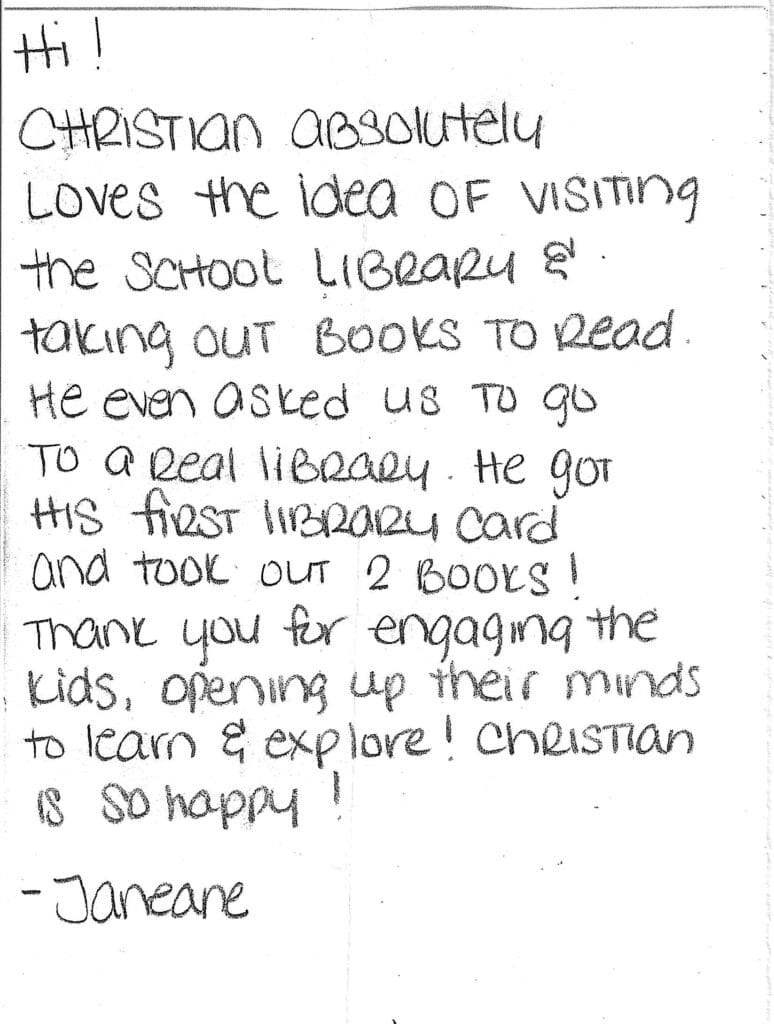 Hi!
CHRISTIAN absolutely
Loves the idea OF VISITING
the SCHOOL LIBRARY &
taking OUT BOOKS TO Read.
He even asked us TO go
TO a Real liBRaRy. He got
HIS fiRST liBRaRy card
and took OUT 2 BOOKS!
Thank you for engaging the
kids, opening up their minds
to learn & explore! ChRISTian
is so happy!
- Janeane